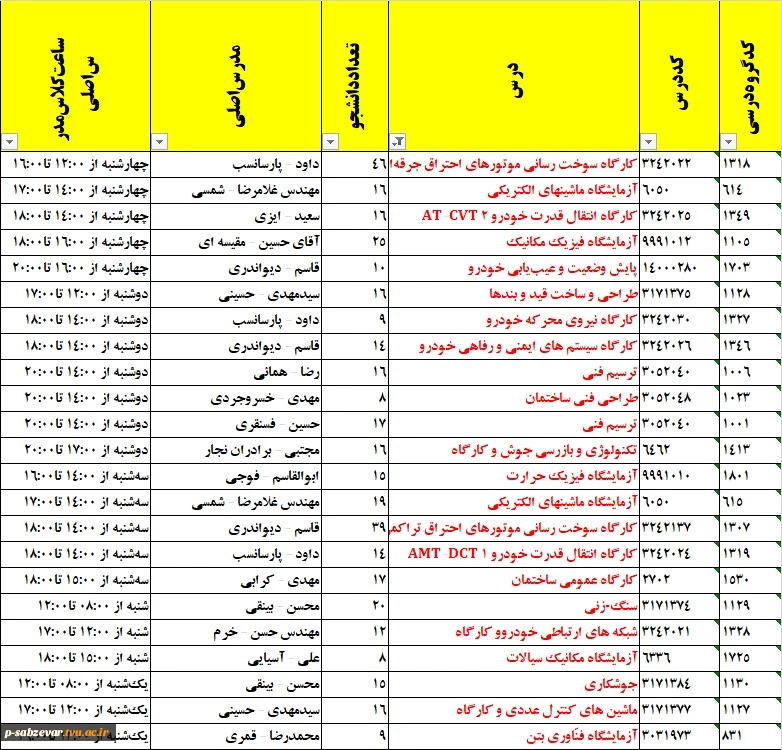 کدگروه‌درسی کددرس درس تعداددانشجو مدرس‌اصلی ساعت‌کلاس‌مدر س‌اصلی
۱۳۱۸ ۳۲۴۲۰۲۲ کارگاه سوخت رسانی موتورهای احتراق جرقه‌ا ۴۶ داود - پارسانسب چهارشنبه از ۱۲:۰۰ تا۱۶:۰۰
۶۱۴ ۶۰۵۰ آزمایشگاه ماشینهای الکتریکی ۱۶ مهندس غلامرضا - شمسی چهارشنبه از ۱۴:۰۰ تا۱۷:۰۰
۱۳۴۹ ۳۲۴۲۰۲۵ کارگاه انتقال قدرت خودرو ۲ AT-CVT ۱۶ سعید - ایزی چهارشنبه از ۱۴:۰۰ تا۱۸:۰۰
۱۱۰۵ ۹۹۹۱۰۱۲ آزمایشگاه فیزیک مکانیک ۲۵ آقای حسین - مقیسه ای چهارشنبه از ۱۶:۰۰ تا۱۸:۰۰
۱۷۰۳ ۱۴۰۰۰۲۸۰ پایش وضعیت و عیب‌یابی خودرو ۱۰ قاسم - دیواندری چهارشنبه از ۱۶:۰۰ تا۲۰:۰۰
۱۱۲۸ ۳۱۷۱۳۷۵ طراحی و ساخت قید و بندها ۱۶ سیدمهدی - حسینی دوشنبه از ۱۲:۰۰ تا۱۷:۰۰
۱۳۲۷ ۳۲۴۲۰۳۰ کارگاه نیروی محرکه خودرو ۹ داود - پارسانسب دوشنبه از ۱۴:۰۰ تا۱۸:۰۰
۱۳۴۶ ۳۲۴۲۰۲۶ کارگاه سیستم های ایمنی و رفاهی خودرو ۱۴ قاسم - دیواندری دوشنبه از ۱۴:۰۰ تا۱۸:۰۰
۱۰۰۶ ۳۰۵۲۰۴۰ ترسیم فنی ۱۶ رضا - همانی دوشنبه از ۱۴:۰۰ تا۲۰:۰۰
۱۰۲۳ ۳۰۵۲۰۴۸ طراحی فنی ساختمان ۸ مهدی - خسروجردی دوشنبه از ۱۴:۰۰ تا۲۰:۰۰
۱۰۰۱ ۳۰۵۲۰۴۰ ترسیم فنی ۱۷ حسین - فسنقری دوشنبه از ۱۴:۰۰ تا۲۰:۰۰
۱۴۱۳ ۶۴۶۲ تکنولوژی و بازرسی جوش و کارگاه ۱۶ مجتبی - برادران نجار دوشنبه از ۱۷:۰۰ تا۲۰:۰۰
۱۸۰۱ ۹۹۹۱۰۱۰ آزمایشگاه فیزیک حرارت ۱۵ ابوالقاسم - فوجی سه‌شنبه از ۱۴:۰۰ تا۱۶:۰۰
۶۱۵ ۶۰۵۰ آزمایشگاه ماشینهای الکتریکی ۱۹ مهندس غلامرضا - شمسی سه‌شنبه از ۱۴:۰۰ تا۱۷:۰۰
۱۳۰۷ ۳۲۴۲۱۳۷ کارگاه سوخت رسانی موتورهای احتراق تراکمی ۳۹ قاسم - دیواندری سه‌شنبه از ۱۴:۰۰ تا۱۸:۰۰
۱۳۱۹ ۳۲۴۲۰۲۴ کارگاه انتقال قدرت خودرو ۱ AMT-DCT ۱۴ داود - پارسانسب سه‌شنبه از ۱۴:۰۰ تا۱۸:۰۰
۱۵۳۰ ۲۷۰۲ کارگاه عمومی ساختمان ۱۷ مهدی - کرابی سه‌شنبه از ۱۵:۰۰ تا۱۸:۰۰
۱۱۲۹ ۳۱۷۱۳۷۴ سنگ‌-زنی ۲۰ محسن - بینقی شنبه از ۰۸:۰۰ تا۱۲:۰۰
۱۳۲۸ ۳۲۴۲۰۲۱ شبکه های ارتباطی خودروو کارگاه ۱۲ مهندس حسن - خرم شنبه از ۱۲:۰۰ تا۱۷:۰۰
۱۷۲۵ ۶۳۳۶ آزمایشگاه مکانیک سیالات ۸ علی - آسیایی شنبه از ۱۵:۰۰ تا۱۸:۰۰
۱۱۳۰ ۳۱۷۱۳۸۴ جوشکاری ۱۵ محسن - بینقی یک‌شنبه از ۰۸:۰۰ تا۱۲:۰۰
۱۱۲۷ ۳۱۷۱۳۷۷ ماشین های کنترل عددی و کارگاه ۱۶ سیدمهدی - حسینی یک‌شنبه از ۱۲:۰۰ تا۱۷:۰۰
۸۳۱ ۳۰۳۱۹۷۳ آزمایشگاه فنّاوری بتن ۹ محمدرضا - قمری
p-sabzevar.tvu.ac.ir